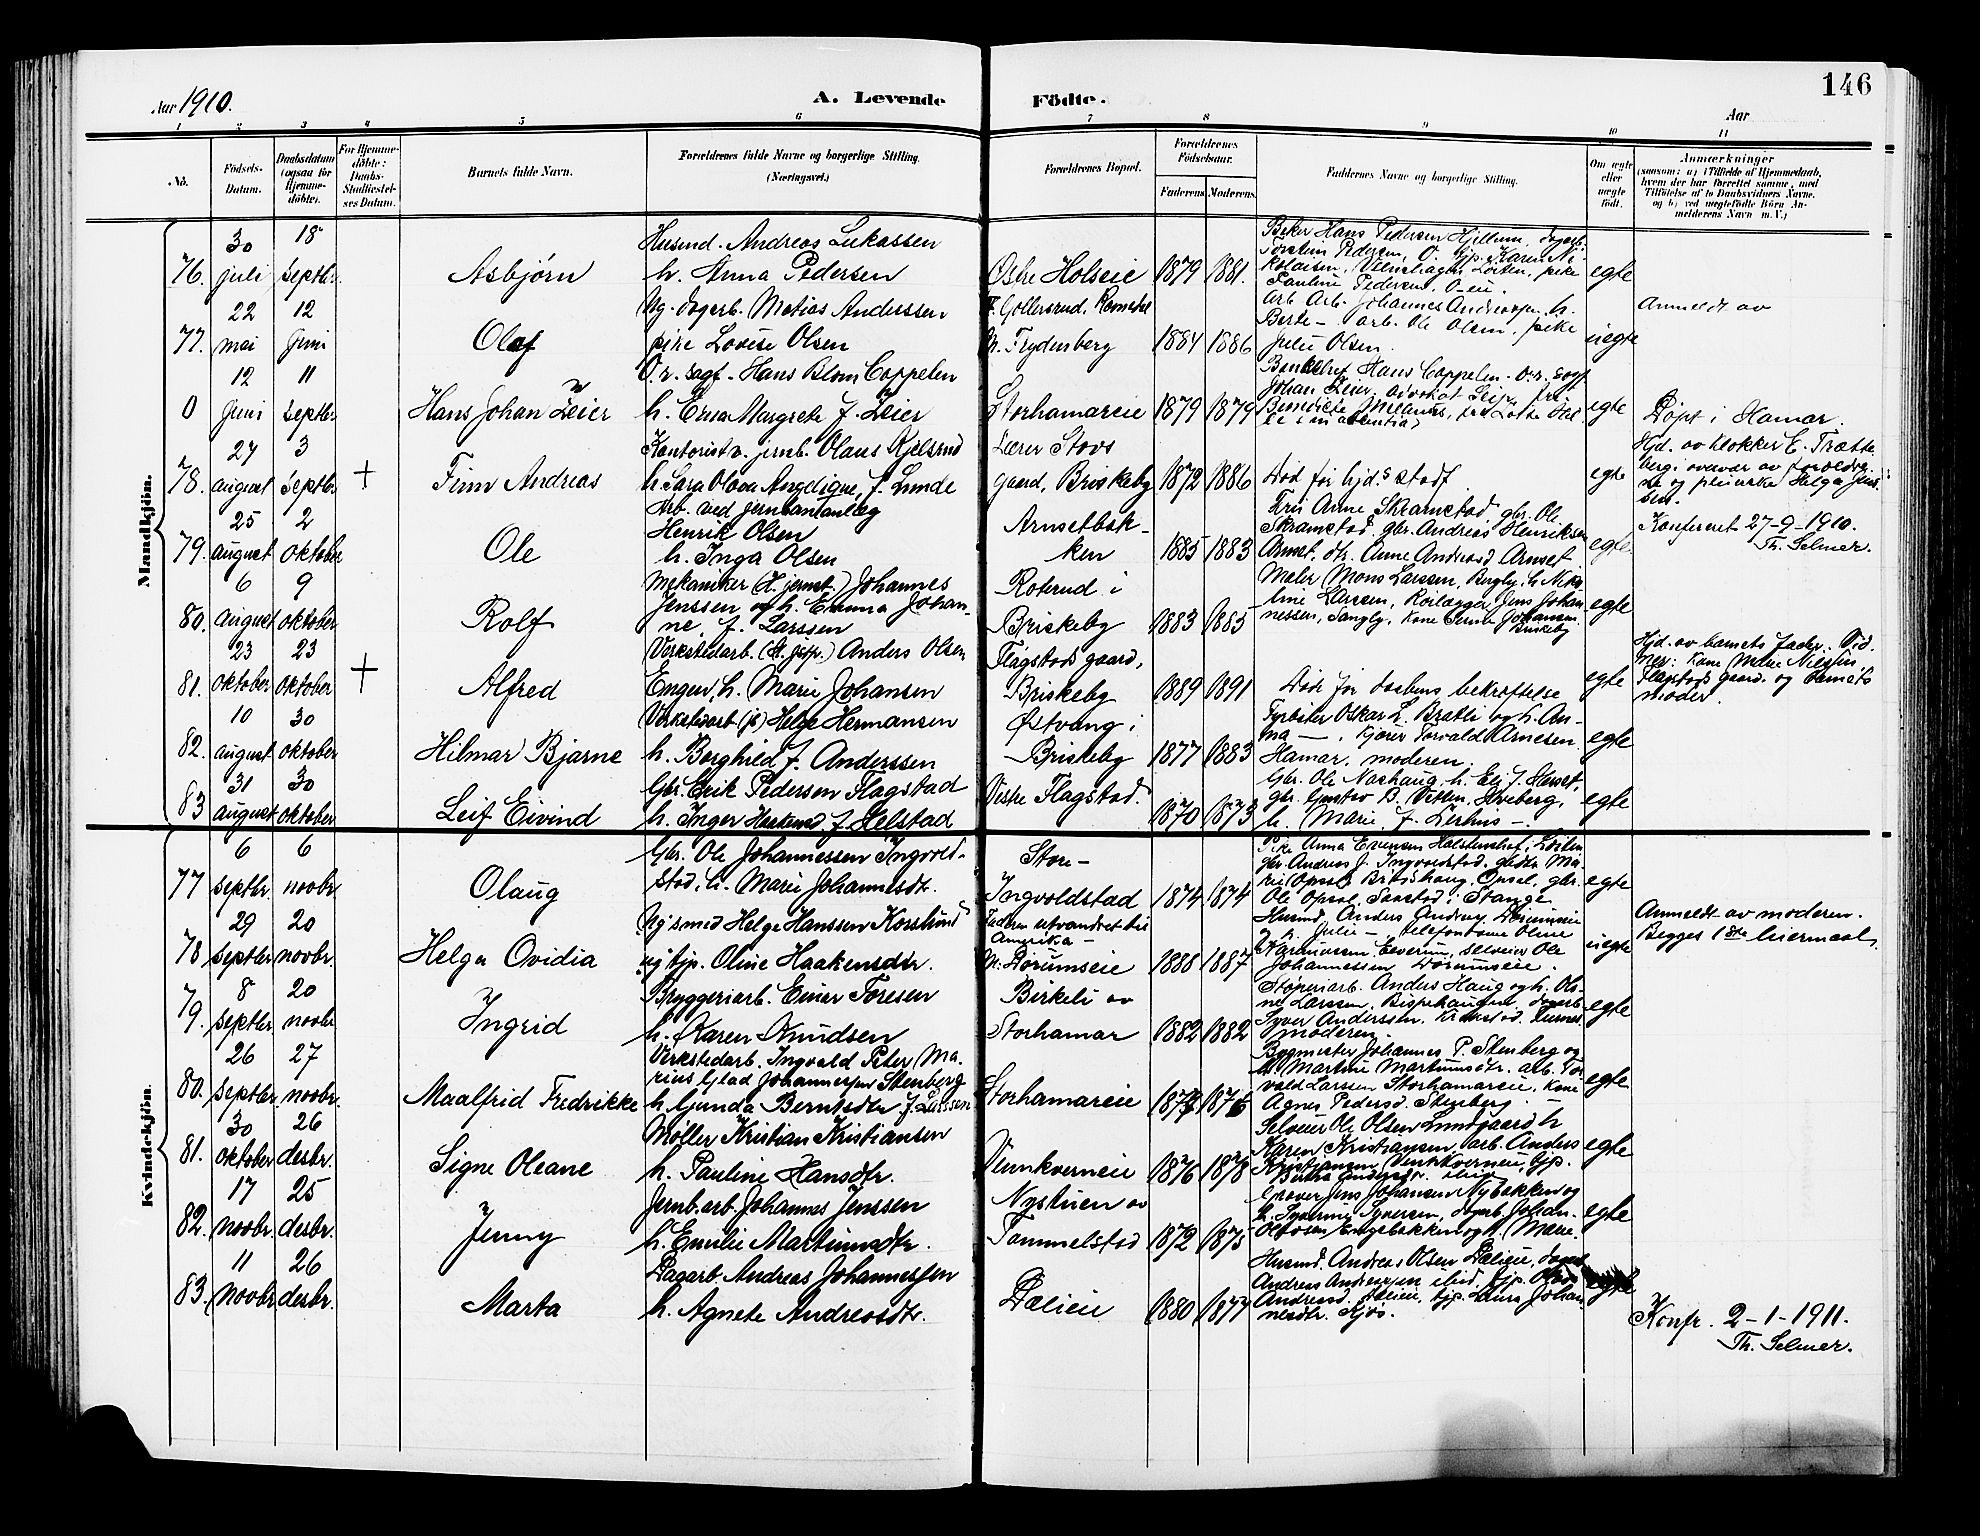 146
Aar 1910.
A. Levende Födte.
Aar
1 2 3 4 5 6 7 8 9 10 11
No.
Födsels-Datum.
Daabsdatum (ogsaa for Hjemmedöbte).
For Hjemmedöbte: Daabs-Stadfæstelses Datum.
Barnets fulde Navn.
Forældrenes fulde Navne og borgerlige Stilling. (Næringsvei.)
Forældrenes Bopæl.
Forældrenes Födselsaar.
Faderens. Moderens.
Faddernes Navne og borgerlige Stilling.
Om ægte eller uægte födt.
Anmærkninger (saasom: a) i Tilfælde af Hjemmedaab, hvem der har forrettet samme, med Tilföielse af to Daabsvidners Navne. og b) ved uægtefödte Börn Anmelderens Navn m. V.)
Mandkjön.
76. 30 juli
18 septbr.
Asbjørn
Husmd. Andreas Lukassen
h. Anna Pedersen
Østre Holseie
1879 1881.
Beker Hans Pedersen Hjellum,
egte
77. 22 mai
12 juni
Olaf
Ug. dagarb. Matias Anderssen
pike Lovise Olsen
F. Gollersrud, Romedal
M. Frydenberg
1884 1886
arb. Johannes Anderssen, h.
Berte – arb. Ole Olsen, pike
Julie Olsen.
uegte
Anmeldt av
0 12 juni
11 septbr.
Hans Johan Zeier
O.r. sagf. Hans Blom Cappelen
h. Erna Margrete f. Zeier
Storhamareie
1879 1879
Bankchef Hans Cappelen. O.r. sagf.
Johan Zeier, advokat
egte
Døpt i Hamar.
78. 27 august
3 septbr.
+
Finn Andreas
Kontorist v. jernb. Olaus Kjelsrud
h. Sara Olava Angdigne, f. Lunde
Lærer Stovs
gaard, Briskeby
1872 1886
Død før hjds. stadf.
egte
Hjd. av blokker E. Trætte
berg i overvær av foreldre
ne og pleierske Helga Jens
sen.
79. 25 august
2 oktober
Ole
Arb. ved jernbaneanlæg
Henrik Olsen
h. Inga Olsen
Arnsetbak-
ken
1885 1883
Fru Anne Skramstad, gbr. Ole
Skramstad, gbr. Andreas Henriksen
Arnset, dtr. Anne Andreasd. Arnset
egte
Konfereret 27-9-1910.
Th. Selmer.
80. 6 august
9 oktober
Rolf
Mekaniker (H. jernst.) Johannes
Jenssen og h. Emma Johan-
ne, f. Larssen
Roterud i
Briskeby
1883 1885
Maler Mons Larssen, Bergby, h. Niko
line Larssen, Rørlægger Jens Johan
nessen, Sangby, Kone Johansen
Briskeby
egte
81. 23 oktober
23 oktober
+
Alfred
Verkstedarb. Anders Olsen
Engen, h. Marie Johansen
Flagstads gaard,
Briskeby
1889 1891
Døde før daabens bekræftelse
egte
Hjd. av barnets fader. Vid
ner: kone Marie Nielsen,
Flagstads gaard og barnets
moder.
82. 10 august
30 oktober
Hilmar Bjarne
Verkstedarb. (js) Helge Hermansen
h. Borghild f. Anderssen
Østvang i
Briskeby
1877 1883
Fyrbøter Oskar L. Bratli og h. An-
na —, kjører Torvald Arnesen
Hamar, moderen.
egte
83 31 august
30 oktober
Leif Eivind
Gbr. Erik Pedersen Flagstad
h. Inger f. Helstad
Vestre Flagstad.
1870 1873
Gbr. Ole Nashaug, h. Eli f. Hasset,
gbr. Gustav B. Hveberg,
h. Marie f. Lerhus –
egte
Kvindekjön.
77 6 septbr.
6 novbr.
Olaug
Gbr. Ole Johannessen Ingvold-
stad, h. Marie Johannesdtr.
Store-
Ingvoldstad
1874 1874
Pike Anna Evensen Halstenshof, Løiten
gbr. Andreas J. Ingvoldstad,
Ole Opsal, i Stange
egte
78 29 septbr.
20 novbr.
Helga Ovidia
Ug. smed Helge Hanssen Korslund
ug tjp. Oline Haakensdtr.
Faderen utvandret til
Amerika –
M. Dørumseie
1888 1887
Husmd. Anders Dørumseie
h. Julie – telefondame Oline
Johannessen Dørumseie.
uegte
Anmeldt av moderen.
Begges 1ste leiermaal.
79. 8 septbr.
20 novbr.
Ingrid
Bryggeriarb. Einar Toresen
h. Karen Knudsen
Birkeli av
Storhamar
1882 1882
Støperiarb. Anders Haug og h.
Larssen, Bispehaugen, dagarb.
Syver Anderssen, Furnes
moderen.
egte
80. 26 septbr.
27 novbr.
Maalfrid Fredrikke
Verkstedarb. Ingvald Peter Ma-
rius Glad Johannessen Stenberg
h. Gunda Berntsdtr. f. Larssen
Storhamareie
1877 1876
Bygmester Johannes P. Stenberg og
h. Martine Martinusdtr. arb. Tor
vald Larssen Storhamareie, kone
Agnes Pedersd. Stenberg.
egte
81. 30 oktober
26 desbr.
Signe Oleane
Møller Kristian Kristiansen
h. Pauline Hansdtr.
Vienkverneie
1876 1878
Selveier Ole Olsen Lundgaard h
Karen Kristiansen, arb. Anders
Kristiansen
egte
82. 17 novbr.
25 desbr.
Jenny
Jernb.arb. Johannes Jenssen
h. Emilie Martinusdtr.
Nystuen av
Tommelstad
1872 1875
Graver Jens Johansen Nybakken og
h. Syverine Syversen, dagarb. Johan.
Olavsen Engebakken og h. Marie.
egte
83. 11 novbr.
26 desbr.
Marta
Dagarb. Andreas Johannessen
h. Agnete Andreasdtr.
Dælieie
1880 1877
Husmd. Andreas Olsen Dælieie,
Andreas Andreassen ibid, tjp.
Andreasd. Dælieie, tjp. Laura Johan
nesdtr. Sjøs.
egte
Konfr. 2-1-1911.
Th. Selmer.